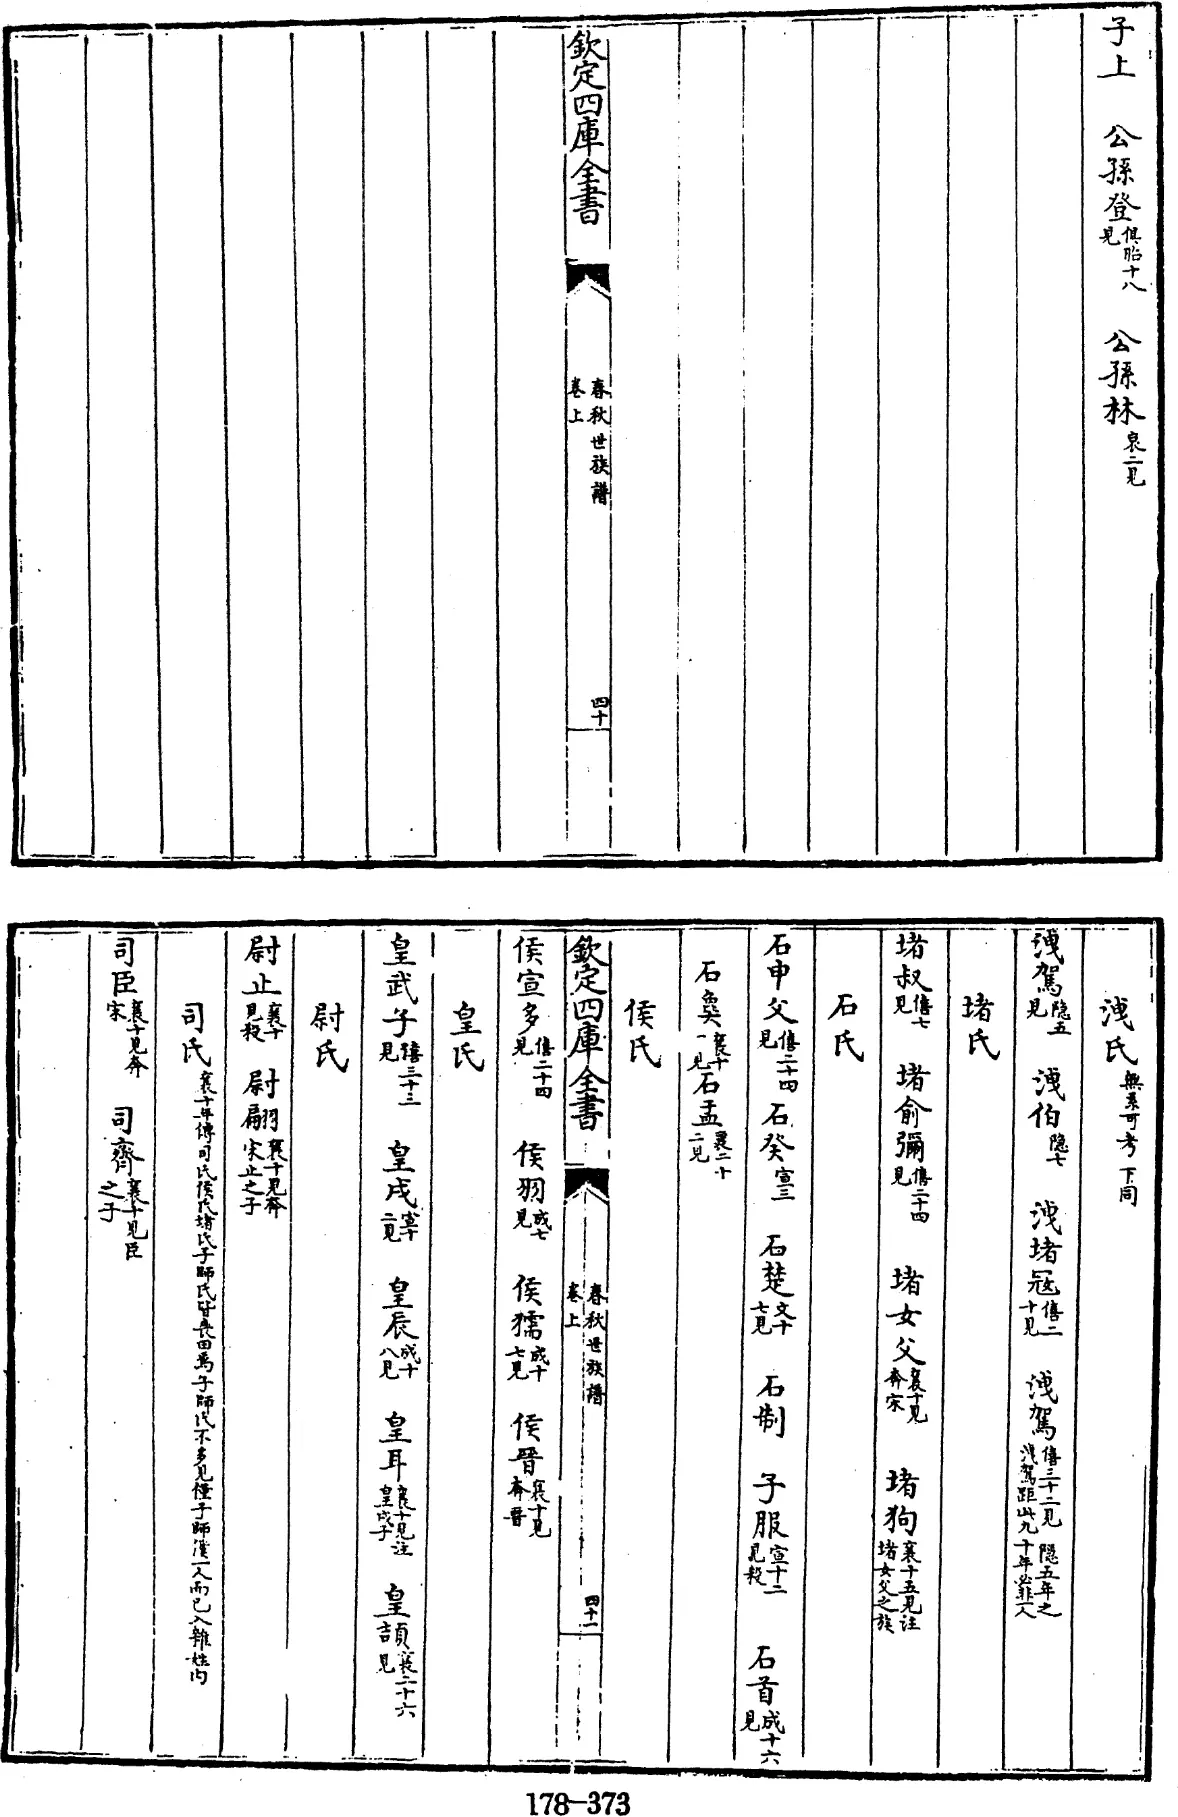 子上　公孫登俱昭十八見　公孫林哀二見
欽定四庫全書　春秋世族譜卷上　四十
洩氏無系可考下同
洩駕隱五見　洩伯隱七　洩堵寇僖二十見　洩駕僖三十二見隱五年之洩駕距此九十年必非一人
堵氏
堵叔僖七見　堵俞彌僖二十四見　堵女父襄十見奔宋　堵狗襄十五見注堵女父之族
石氏
石申父僖二十四見　石癸宣三　石楚文十七見　石制　子服宣十二見殺　石首成十六見
石㚟襄十一見　石盂襄二十二見
侯氏
欽定四庫全書　春秋世族譜卷上　四十一
侯宣多僖二十四見　侯羽成七見　侯獳成十七見　侯晉襄十見奔晉
皇氏
皇武子僖三十三見　皇戌宣十二見　皇辰成十八見　皇耳襄十見注皇戌子　皇頡襄二十六見
尉氏
尉止襄十見殺　尉翩襄十見奔宋止之子
司氏襄十年傳司氏侯氏堵氏子師氏皆喪田焉子師氏不多見僅子師僕一人而已入雜姓內
司臣襄十見奔宋　司齊襄十見臣之子
178-373